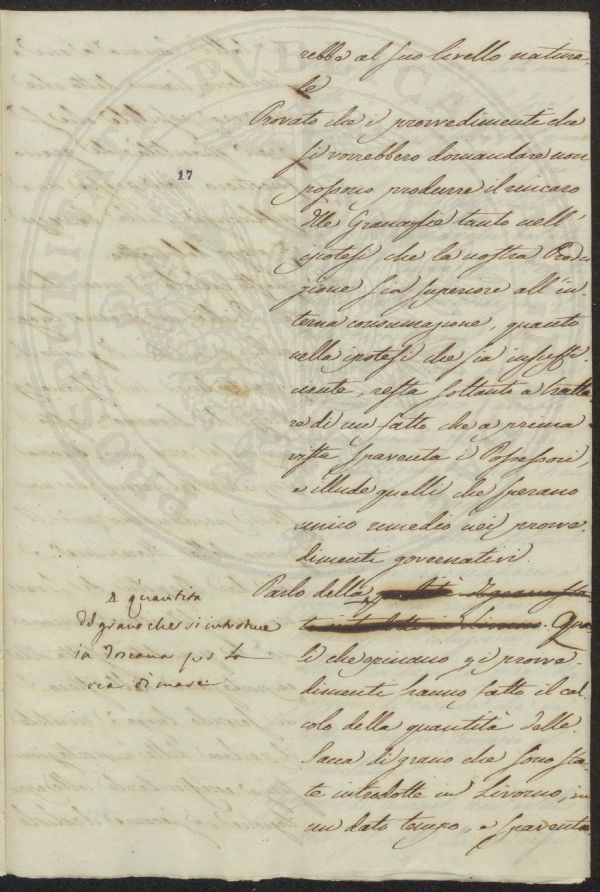 rebbe al suo livello natura-
le
Provato che i provvedimenti che
si vorrebbero domandare non
possono produrre il rincaro
17
dlle Granaglie tanto nell'
ipotesi che la nostra Produ
zione sia superiore all'in-
terna consumazione, quanto
nella ipotesi che sia insuffi
ciente, resta soltanto a tratta
re di un fatto che a prima
vista spaventa i Possessori,
e illude quelli che sperano
unico rimedio nei provve-
dimenti governativi.
Parlo della
quantita
del grano che si introduce
in Toscana per la
via di mare
. Que-
li che opinano pi provve-
dimenti hanno fatto il cal-
colo della quantità delle
Sacca di grano che sono sta-
te introdotte in Livorno, in
un dato tempo, e spaventa
PROSPERITATI PUBLICAE